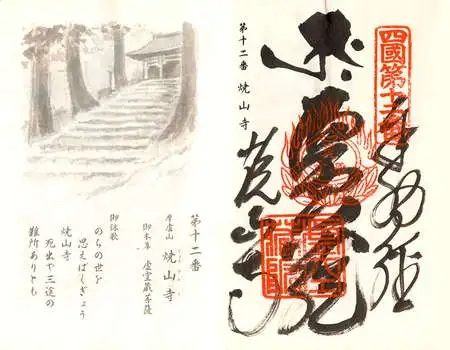 四國第十二番
奉納経
焼山寺
第十二番 焼山寺
第十二番
焼山寺
御本尊 虚空蔵菩薩
御詠歌
のちの世を
思えばくぎょう
焼山寺
死出や三途の
難所ありとも